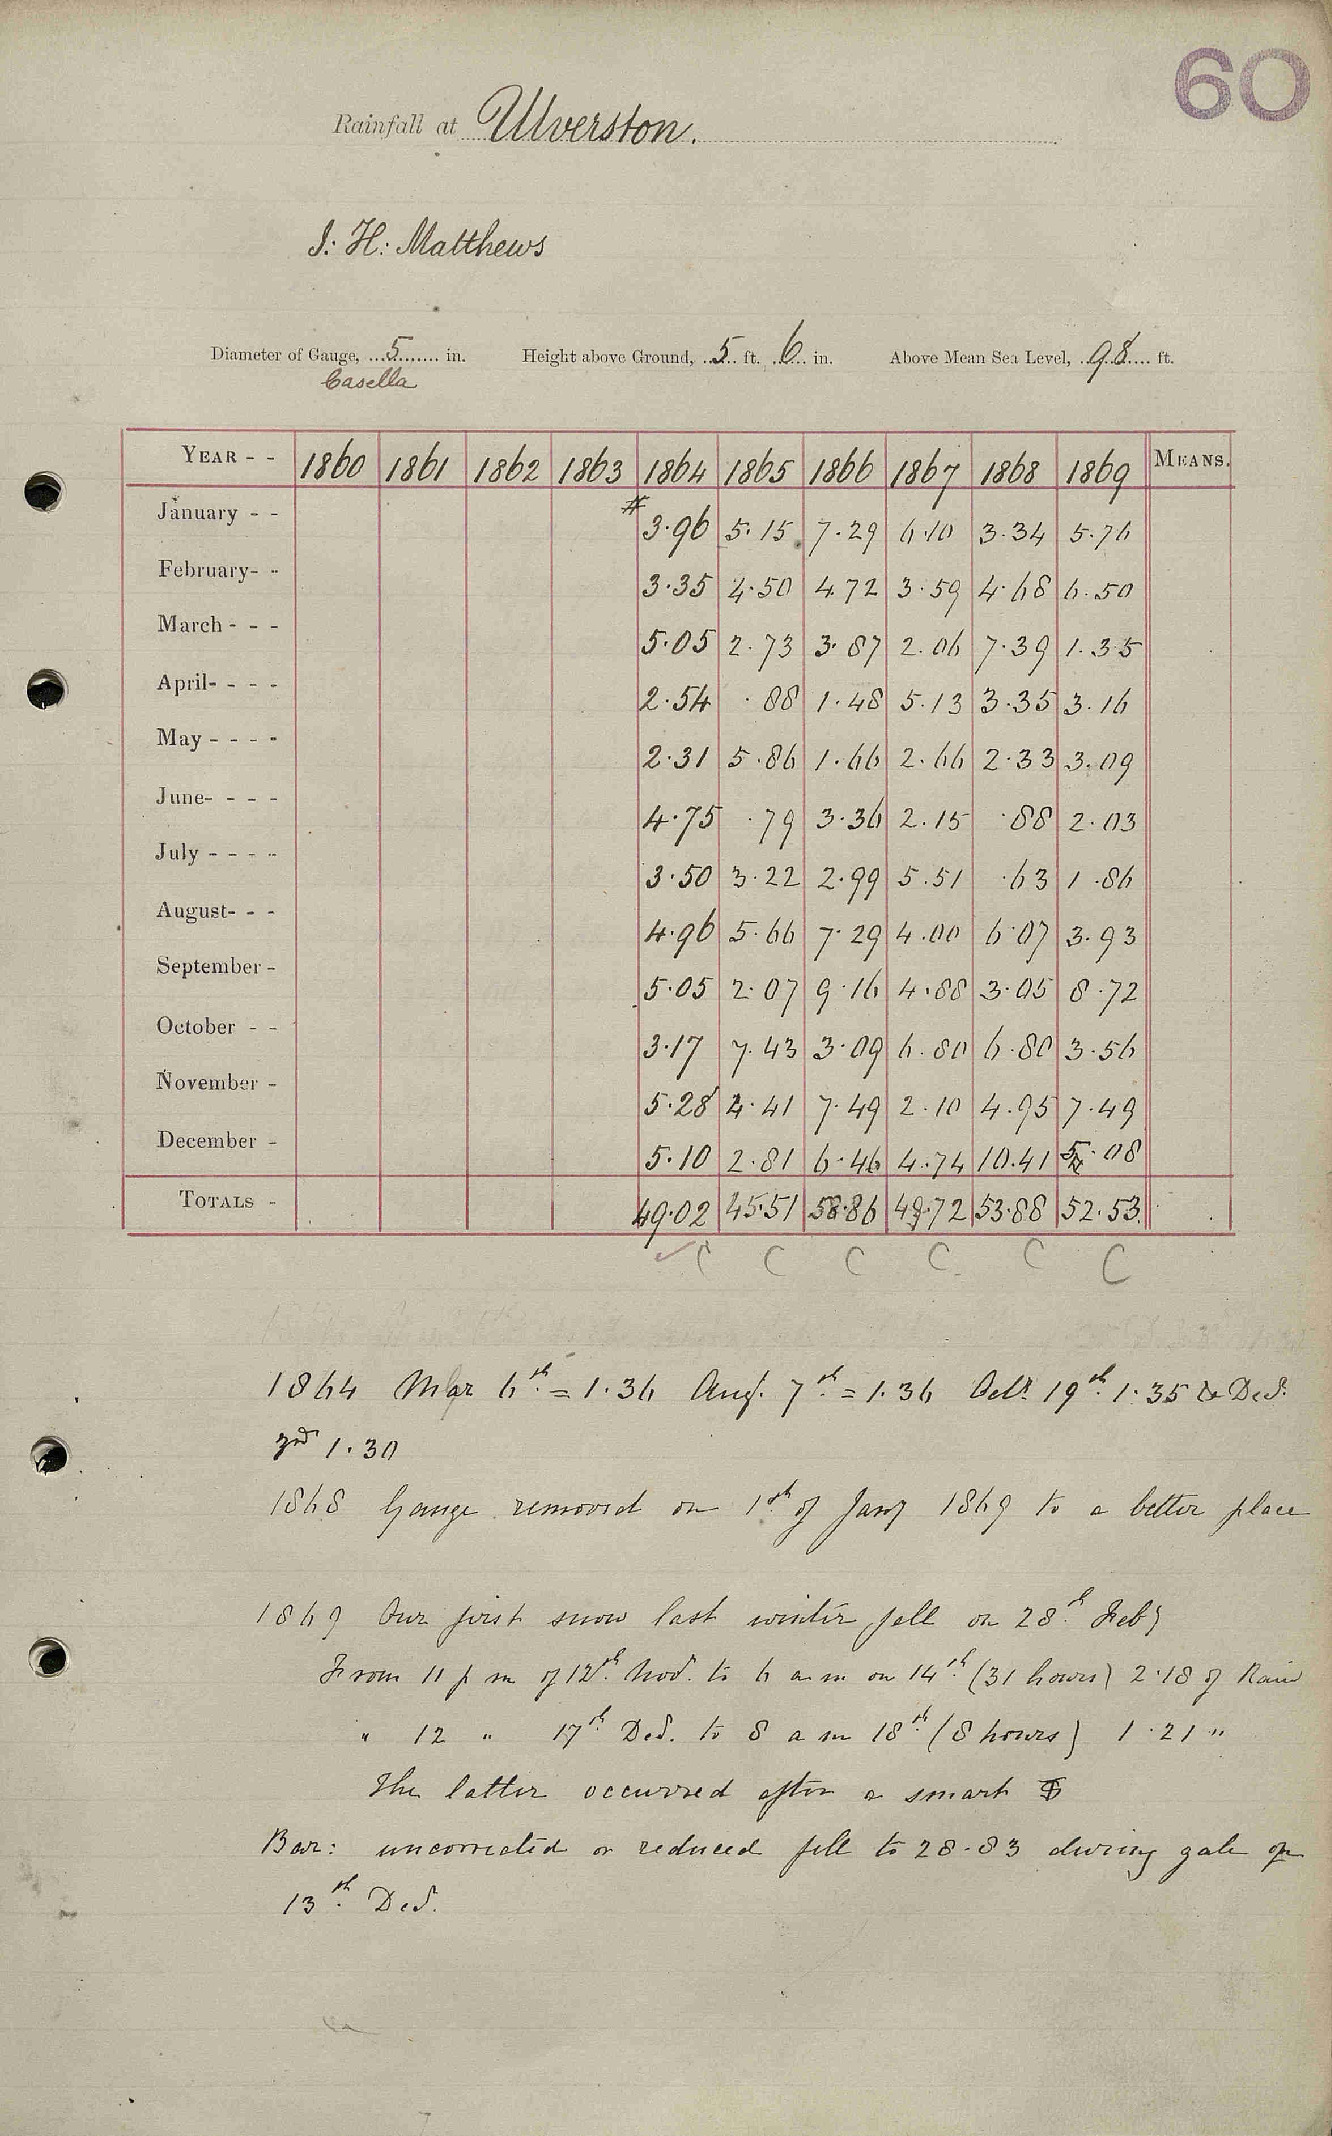 60
Rainfall at Ulverston.
J: H: Matthews
Diameter of Gauge, 5 in. Height above Ground, 5 ft. 6 in. Above Mean Sea Level, 98 ft.
Casella
YEAR - - 1860 1861 1862 1863 1864 1865 1866 1867 1868 1869 MEANS.
January - - # 3.96 5.15 7.29 6.10 3.34 5.76
February- - 3.35 4.50 4.72 3.59 4.68 6.50
March - - - 5.05 2.73 3.87 2.06 7.39 1.35
April- - - - 2.54 .88 1.48 5.13 3.35 3.16
May - - - - 2.31 5.86 1.66 2.66 2.33 3.09
June- - - - 4.75 .79 3.36 2.15 .88 2.03
July - - - - 3.50 3.22 2.99 5.51 .63 1.86
August- - - 4.96 5.66 7.29 4.00 6.07 3.93
September - 5.05 2.07 9.16 4.88 3.05 8.72
October - - 3.17 7.43 3.09 6.80 6.80 3.56
November - 5.28 4.41 7.49 2.10 4.95 7.49
December - 5.10 2.81 6.46 4.74 10.41 5.08
TOTALS - 49.02 45.51 58.86 49.72 53.88 52.53
C C C C C C
1864 Mar 6th = 1.36 Aug. 7th = 1.36 Octr 19th 1.35 & Dec.
3rd 1.30
1868 Gauge removed on 1st of Jany 1869 to a better place
1869 Our first snow last winter fell on 28th Feby
From 11 p m of 12th Nov. to 6 a m on 14th (31 hours) 2.18 of Rain
" 12 " 17th Dec. to 8 a m 18th (8 hours) 1.21 "
The latter occurred after a smart
Bar: uncorrected or reduced fell to 28.83 during gale of
13th Dec.